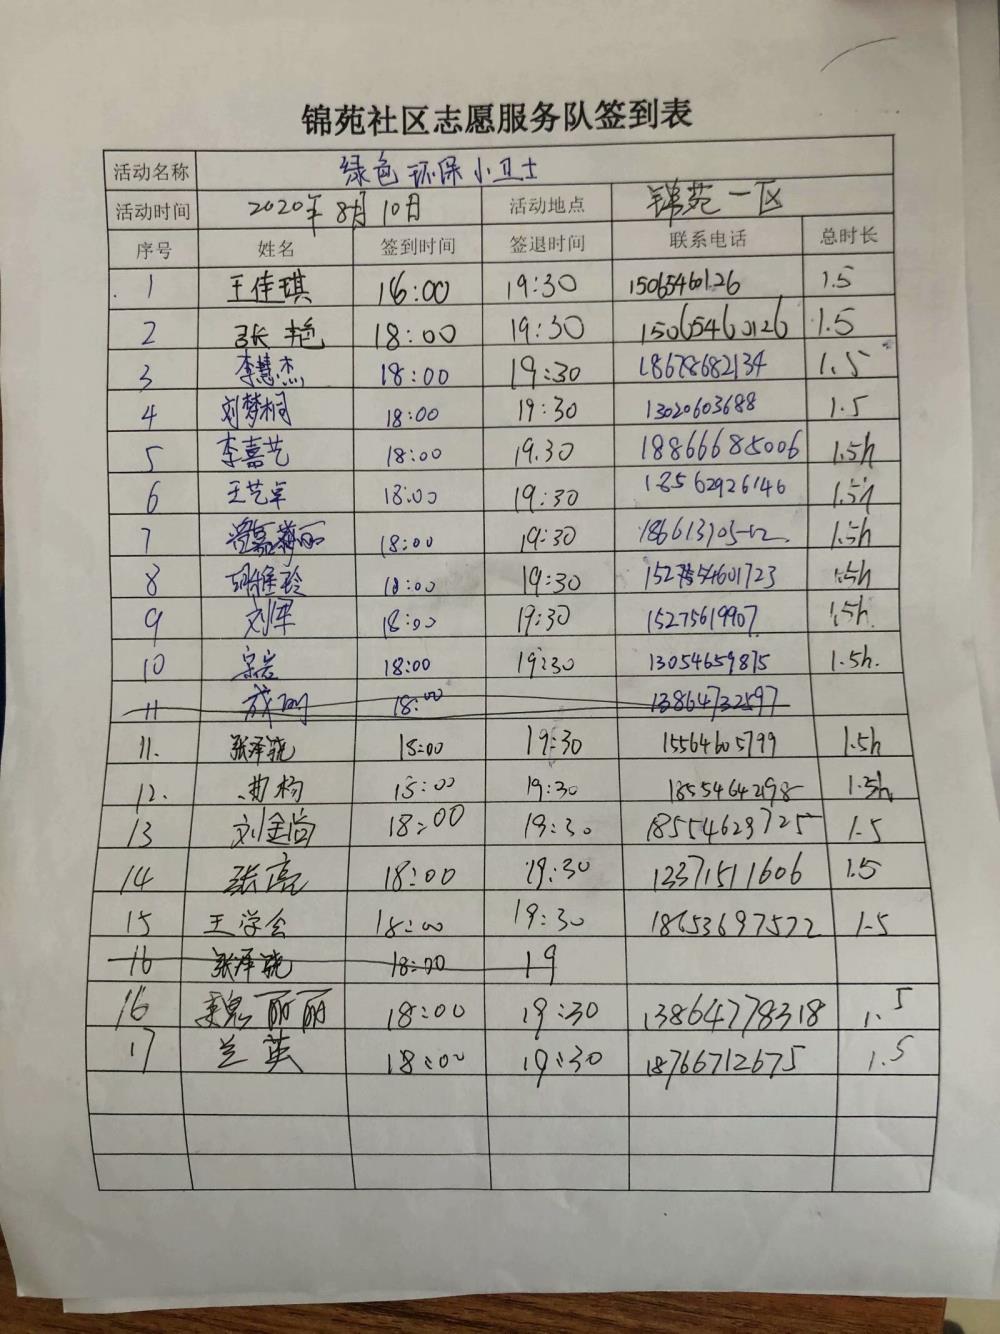 锦苑社区志愿服务队签到表
活动名称 绿色环保小卫士
活动时间 2020年8月10日 活动地点 锦苑一区
序号 姓名 签到时间 签退时间 联系电话 总时长
1 王佳琪 18:00 19:30 15065460126 1.5
2 张艳 18:00 19:30 15065460126 1.5
3 李慧杰 18:00 19:30 18678682134 1.5
4 刘梦桐 18:00 19:30 13020603688 1.5
5 李嘉艺 18:00 19.30 18866685006 1.5h
6 王艺卓 18:00 19:30 18562926146 1.5h
7 18:00 19:30 1.5h
8 18:00 19:30 1.5h
9 刘军 18:00 19:30 15275619907 1.5h.
10 宗岩 18:00 19:30 13054659875 1.5h.
11 18:00 13864732597
11. 张泽骁 18:00 19:30 15564605799 1.5h
12. 曲杨 18:00 19:30 18554642985 1.5h
13 刘金尚 18:00 19:30 18554629725 1.5
14 张亮 18:00 19:30 13371511606 1.5
15 王学会 18:00 19:30 18653697572 1.5
16 张泽骁 18:00 19
16 魏丽丽 18:00 19:30 13864778318 1.5
17 兰英 18:00 19:30 18766712675 1.5